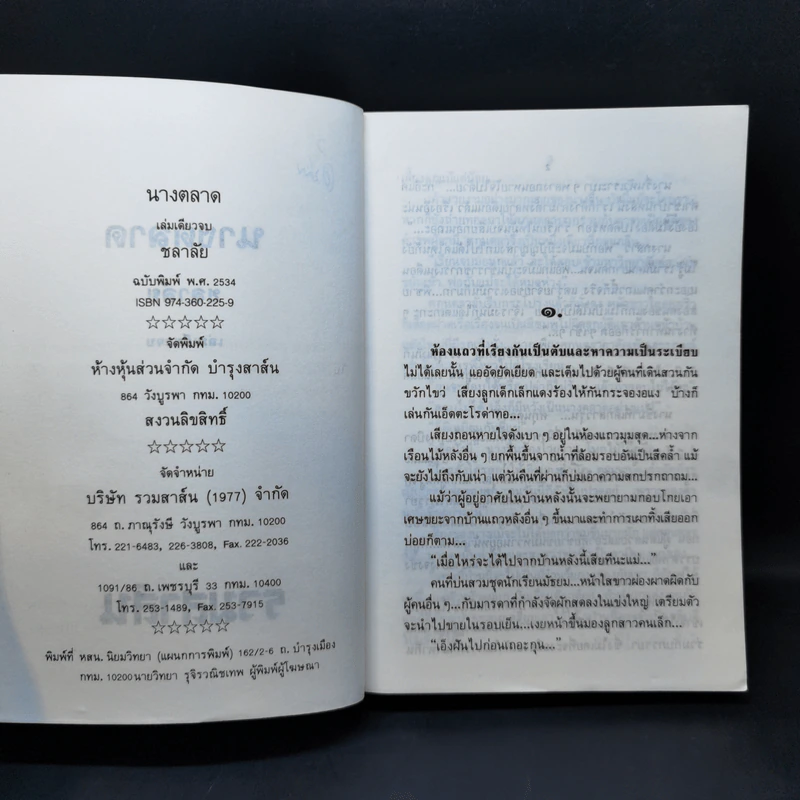 นางตลาด
เล่มเดียวจบ
ชลาลัย
ฉบับพิมพ์ พ.ศ. 2534
ISBN 974-360-225-9
☆☆☆☆☆
จัดพิมพ์
ห้างหุ้นส่วนจำกัด บำรุงสาส์น
864 วังบูรพา กทม. 10200
สงวนลิขสิทธิ์
☆☆☆☆☆
จัดจำหน่าย
บริษัท รวมสาส์น (1977) จำกัด
864 ถ. ภาณุรังษี วังบูรพา กทม. 10200
โทร. 221-6483, 226-3808, Fax. 222-2036
และ
1091/86 ถ. เพชรบุรี 33 กทม. 10400
โทร. 253-1489, Fax. 253-7915
☆☆☆☆☆
พิมพ์ที่ หสน. นิยมวิทยา (แผนกการพิมพ์) 162/2-6 ถ. บำรุงเมือง
กทม. 10200 นายวิทยา รุจิรวณิชเทพ ผู้พิมพ์ผู้โฆษณา
๑.
ห้องแถวที่เรียงกันเป็นตับและหาความเป็นระเบียบ
ไม่ได้เลยนั้น แออัดยัดเยียด และเต็มไปด้วยผู้คนที่เดินสวนกัน
ขวักไขว่ เสียงลูกเด็กเล็กแดงร้องไห้กันกระจองอแง บ้างก็
เล่นกันเอ็ดตะโรด่าทอ...
เสียงถอนหายใจดังเบา ๆ อยู่ในห้องแถวมุมสุด...ห่างจาก
เรือนไม้หลังอื่น ๆ ยกพื้นขึ้นจากน้ำที่ล้อมรอบอันเป็นสีคล้ำ แม้
จะยังไม่ถึงกับเน่า แต่วันคืนที่ผ่านก็บ่มเอาความสกปรกถาถม...
แม้ว่าผู้อยู่อาศัยในบ้านหลังนั้นจะพยายามกอบโกยเอา
เศษขยะจากบ้านแถวหลังอื่น ๆ ขึ้นมาและทำการเผาทิ้งเสียออก
บ่อยก็ตาม...
“เมื่อไหร่จะได้ไปจากบ้านหลังนี้เสียทีนะแม่...”
คนที่บ่นสวมชุดนักเรียนมัธยม...หน้าใสขาวผ่องผาดผิดกับ
ผู้คนอื่น ๆ...กับมารดาที่กำลังจัดผักสดลงในเข่งใหญ่ เตรียมตัว
จะนำไปขายในรอบเย็น...เงยหน้าขึ้นมองลูกสาวคนเล็ก...
“เอ็งฝันไปก่อนเถอะกุน...”